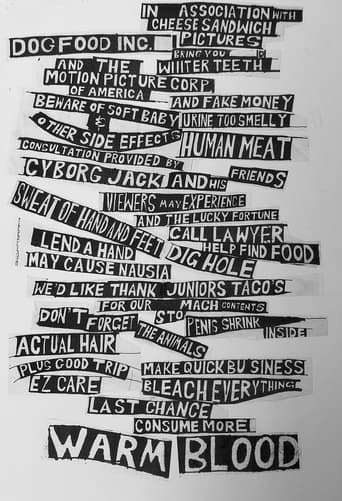 IN ASSOCIATION WITH
CHEESE SANDWICH
DOGFOOD INC. PICTURES
BRING YOU
AND THE WIIITER TEETH
MOTION PICTURE CORP
OF AMERICA AND FAKE MONEY
BEWARE OF SOFT BABY URINE TOO SMELLY
&
OTHER SIDE EFFECTS HUMAN MEAT
CONSULTATION PROVIDED BY
CYBORG JACK AND HIS FRIENDS
VIEWERS MAY EXPERIENCE
SWEAT OF HAND AND FEET AND THE LUCKY FORTUNE
CALL LAWYER
LEND A HAND DIG HOLE HELP FIND FOOD
MAY CAUSE NAUSIA
WE'D LIKE THANK JUNIORS TACO'S
FOR OUR MACH CONTENTS
DON'T FORGET STO PENIS SHRINK INSIDE
THE ANIMALS
ACTUAL HAIR
PLUS GOOD TRIP MAKE QUICK BUSINESS
EZ CARE BLEACH EVERYTHING
LAST CHANCE
CONSUME MORE
WARM BLOOD